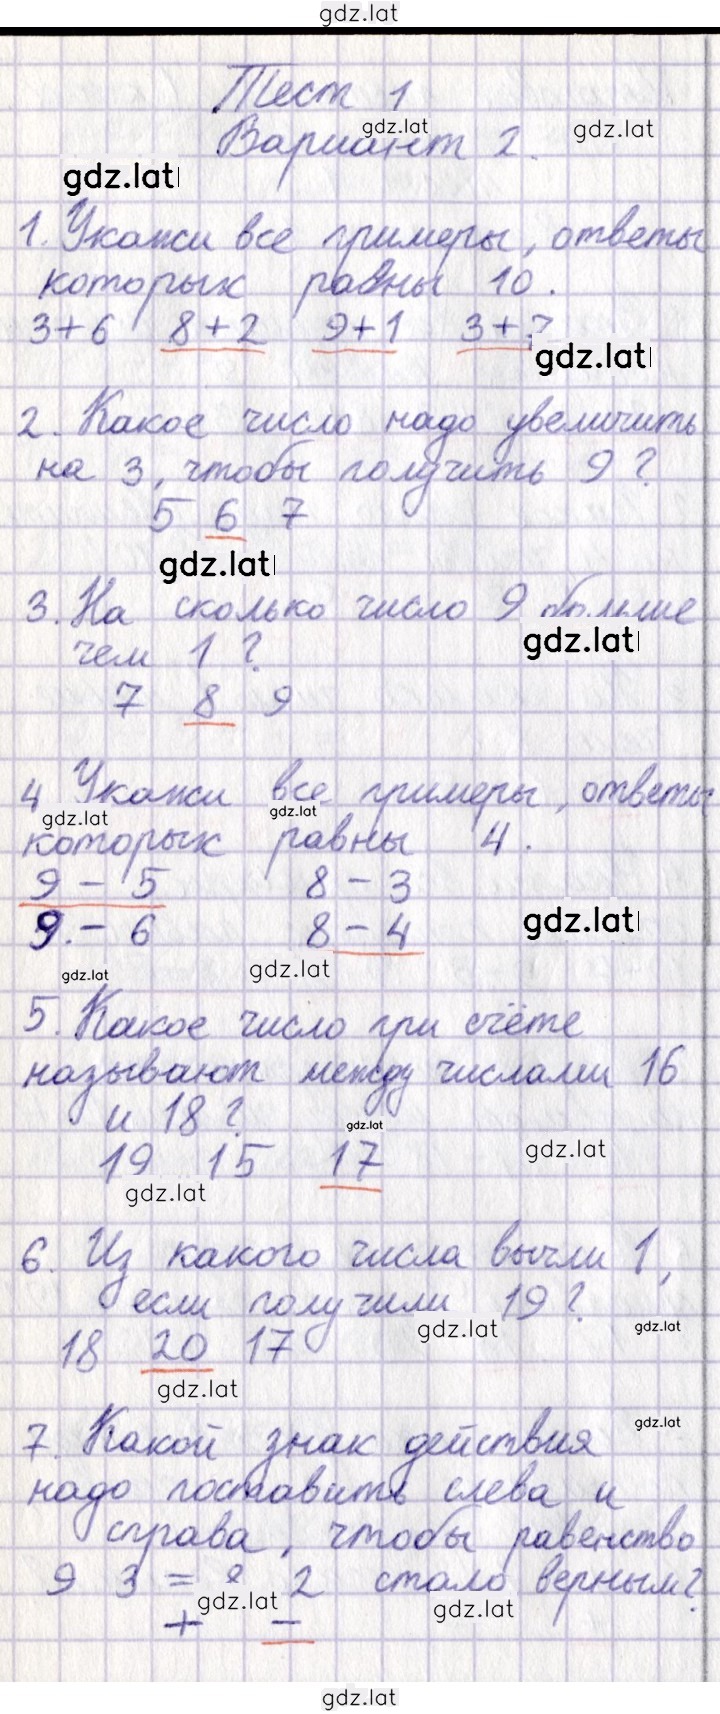 gdz.lat
Тест 1
gdz.lat gdz.lat
Вариант 2.
gdz.lat
1. Укажи все примеры, ответы
которых равны 10.
3+6 8+2 9+1 3+
gdz.lat
2. Какое число надо увеличить
на 3, чтобы получить 9?
5 6 7
gdz.lat
3. На сколько число 9 больше
gdz.lat
чем 1?
7 8 9
4 Укажи все примеры, ответы
gdz.lat gdz.lat
которых равны 4.
9 - 5 8 - 3
9. - 6 8 - 4 gdz.lat
gdz.lat gdz.lat
5. Какое число при счёте
называют между числами 16
и 18?
gdz.lat
19 15 17 gdz.lat
gdz.lat
6. Из какого числа вычли 1,
если получили 19?
gdz.lat gdz.lat
18 20 17
gdz.lat
7. Какой знак действия
gdz.lat
надо поставить слева и
справа, чтобы равенство
9 3 = 2 стало верным?
gdz.lat gdz.lat
+ -
gdz.lat